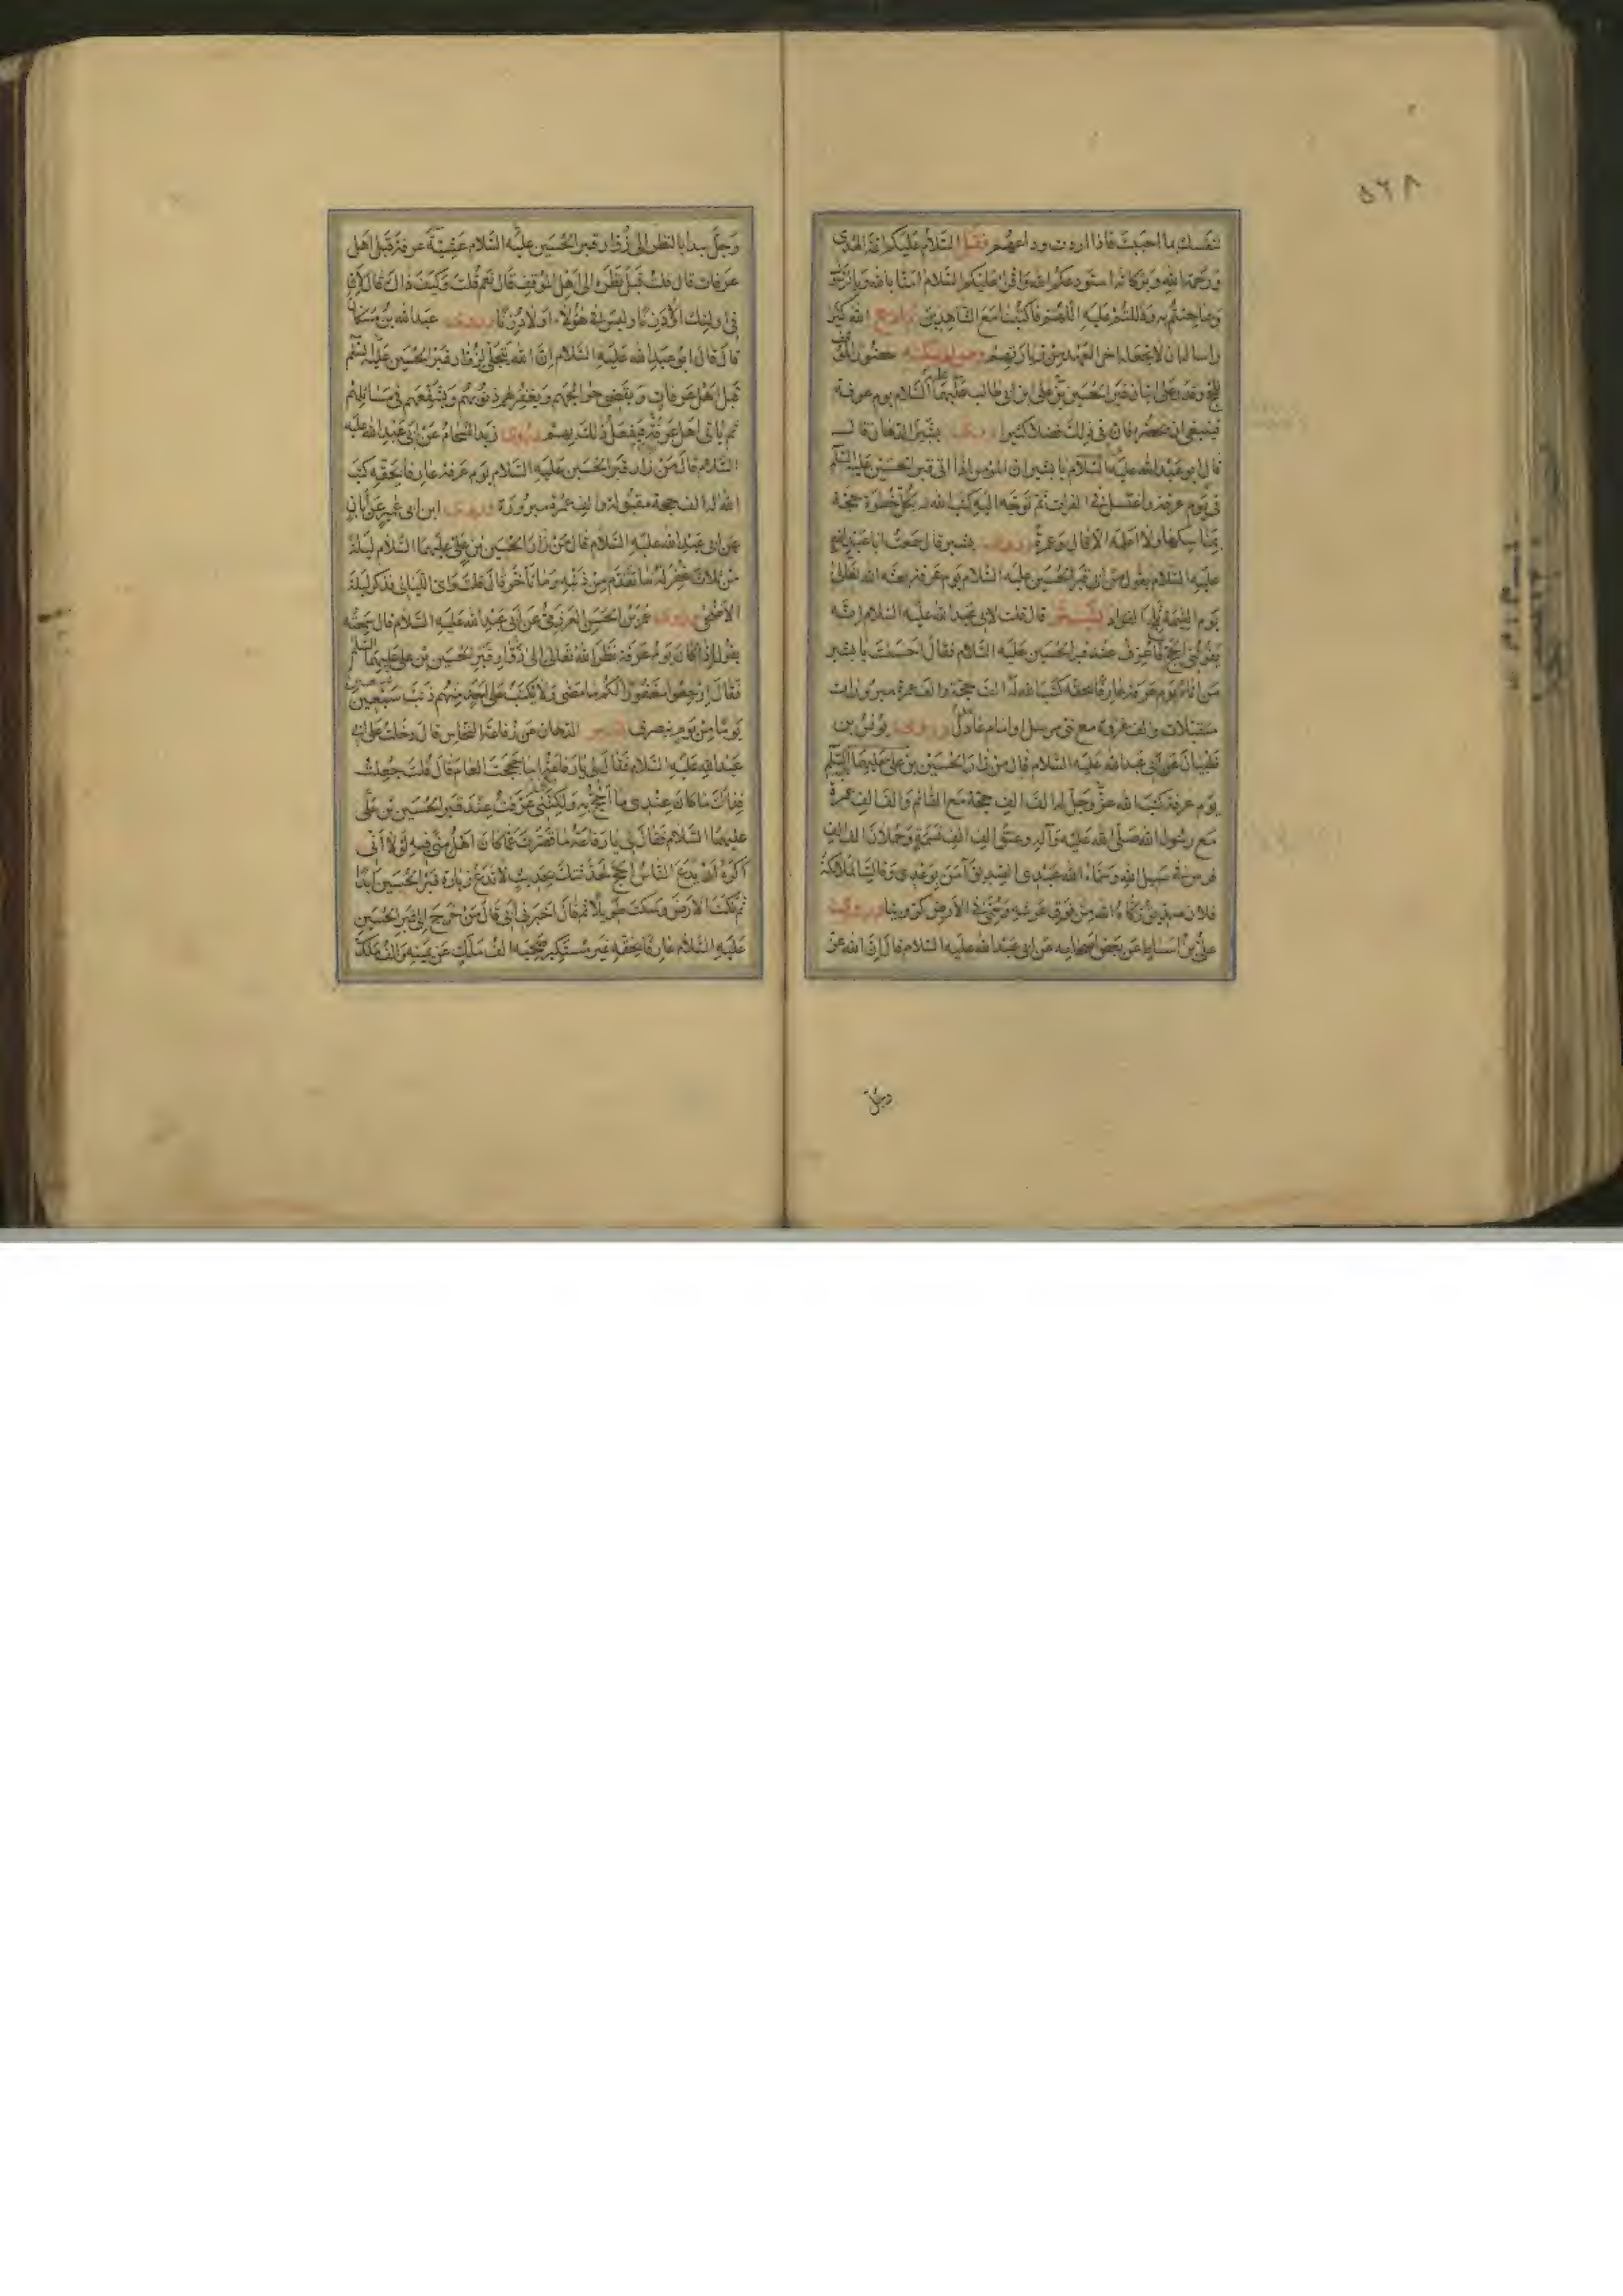 ٥٦٨
لنفسك بما احببت فاذا اردت وداعهم فقل السّلام عليكم ائمّة الهدى
ورحمة الله وبركاته استودعكم الله واقرء عليكم السّلام امنّا بالله وبالرّسول
وبما جئتم به ودللتم عليه اللّهمّ فاكتبنا مع الشّاهدين ثم ادع الله كثيرا
واساله ان لا يجعله اخر العهد من زيارتهم ومن لم يمكنه حضور الموقف
للحجّ وقدر على اتيان قبر الحسين بن علىّ ابن ابى طالب عليهما السّلام يوم عرفة
فينبغى ان يحضره فان فى ذلك فضلا كثيرا روى بشير الدّهان قال
قال ابو عبد الله عليه السّلام يا بشير ان المؤمن اذا اتى قبر الحسين عليه السّلم
فى يوم عرفة واغتسل فى الفرات ثمّ توجّه اليه كتب الله له بكلّ خطوة حجّة
بمناسكها ولا اعلمه الّا قال وعمرة وروى بشير قال سمعت ابا عبد الله
عليه السّلام يقول من اتى قبر الحسين عليه السّلام يوم عرفة بعثه الله تعالى
يوم القيمة ثلج الفؤاد بشير قال قلت لابى عبد الله عليه السّلام انّه
يفوتنى الحجّ فاعرّف عند قبر الحسين عليه السّلام فقال احسنت يا بشير
من اتاه يوم عرفة عارفا بحقّه كتب الله له الف حجّة والف عمرة مبرورات
متقبلات والف غزوة مع نبىّ مرسل او امام عادل وروى يونس بن
ظبيان عن ابى عبد الله عليه السّلام قال من زار الحسين بن علىّ عليهما السّلم
يوم عرفة كتب الله عزّ وجلّ له الف الف حجّة مع القائم والف الف عمرة
مع رسول الله صلّى الله عليه وآله وعتق الف الف نسمة وحملان الف الف
فرس فى سبيل الله وسمّاه الله عبدى الصّديق آمن بوعدى وقالت الملائكة
فلان صدّيق زكّاه الله من فوق عرشه وسمّى فى الارض كرّوبيا وروى
علىّ بن اسباط عن بعض اصحابه عن ابى عبد الله عليه السّلام قال انّ الله عزّ
وجلّ
وجلّ يبدأ بالنظر الى زوّار قبر الحسين عليه السّلام عشيّة عرفة قبل اهل
عرفات قال قلت قبل نظره الى اهل الموقف قال نعم قلت وكيف ذاك قال لانّ
فى اولئك اولاد زنا وليس فى هؤلاء اولاد زنا وروى عبد الله بن مسكان
قال قال ابو عبد الله عليه السّلام انّ الله يتجلّى لزوّار قبر الحسين عليه السّلم
قبل اهل عرفات ويقضى حوائجهم ويغفر لهم ذنوبهم ويشفّعهم فى مسائلهم
ثم ياتى اهل عرفة فيفعل ذلك بهم وروى زيد الشحّام عن ابى عبد الله عليه
السّلام قال من زار قبر الحسين عليه السّلام يوم عرفة عارفا بحقّه كتب
الله له الف حجة مقبولة والف عمرة مبرورة وروى ابن ابى عمير عن ابان
عن ابى عبد الله عليه السّلام قال من زار الحسين بن علىّ عليهما السّلام ليلة
من ثلاث غفر له ما تقدّم من ذنبه وما تأخّر قال قلت واىّ اللّيالى فذكر ليلة
الاضحى وروى عمر بن الحسن العرزمىّ عن ابى عبد الله عليه السّلام قال سمعته
يقول اذا كان يوم عرفة نظر الله تعالى الى زوّار قبر الحسين بن على عليهما السّلم
فقال ارجعوا مغفورا لكم ما مضى ولا يكتب على احد منهم ذنب سبعين
يوما من يوم ينصرف بشير الدّهان عن رفاعة النّخاس قال دخلت على ابى
عبد الله عليه السّلام فقال لى يا رفاعة اما حججت العام قال قلت جعلت
فداك ما كان عندى ما احجّ به ولكنّى عرّفت عند قبر الحسين بن علىّ
عليهما السّلام فقال لى يا رفاعة ما قصّرت عمّا كان اهل منى فيه لولا انّى
اكره ان يدع النّاس الحجّ لحدّثتك بحديث لا تدع زيارة قبر الحسين ابدا
ثمّ نكت الارض وسكت طويلا ثم قال اخبرنى ابى قال من خرج الى قبر الحسين
عليه السّلام عارفا بحقّه غير مستكبر صحبه الف ملك عن يمينه والف ملك